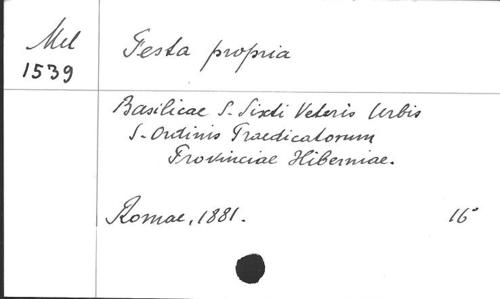 Mel
1539
Festa propria
Basilicae S. Sixti Veteris Urbis
S. Ordinis Praedicatorum
Provinciae Hiberniae.
Romae, 1881. 16°